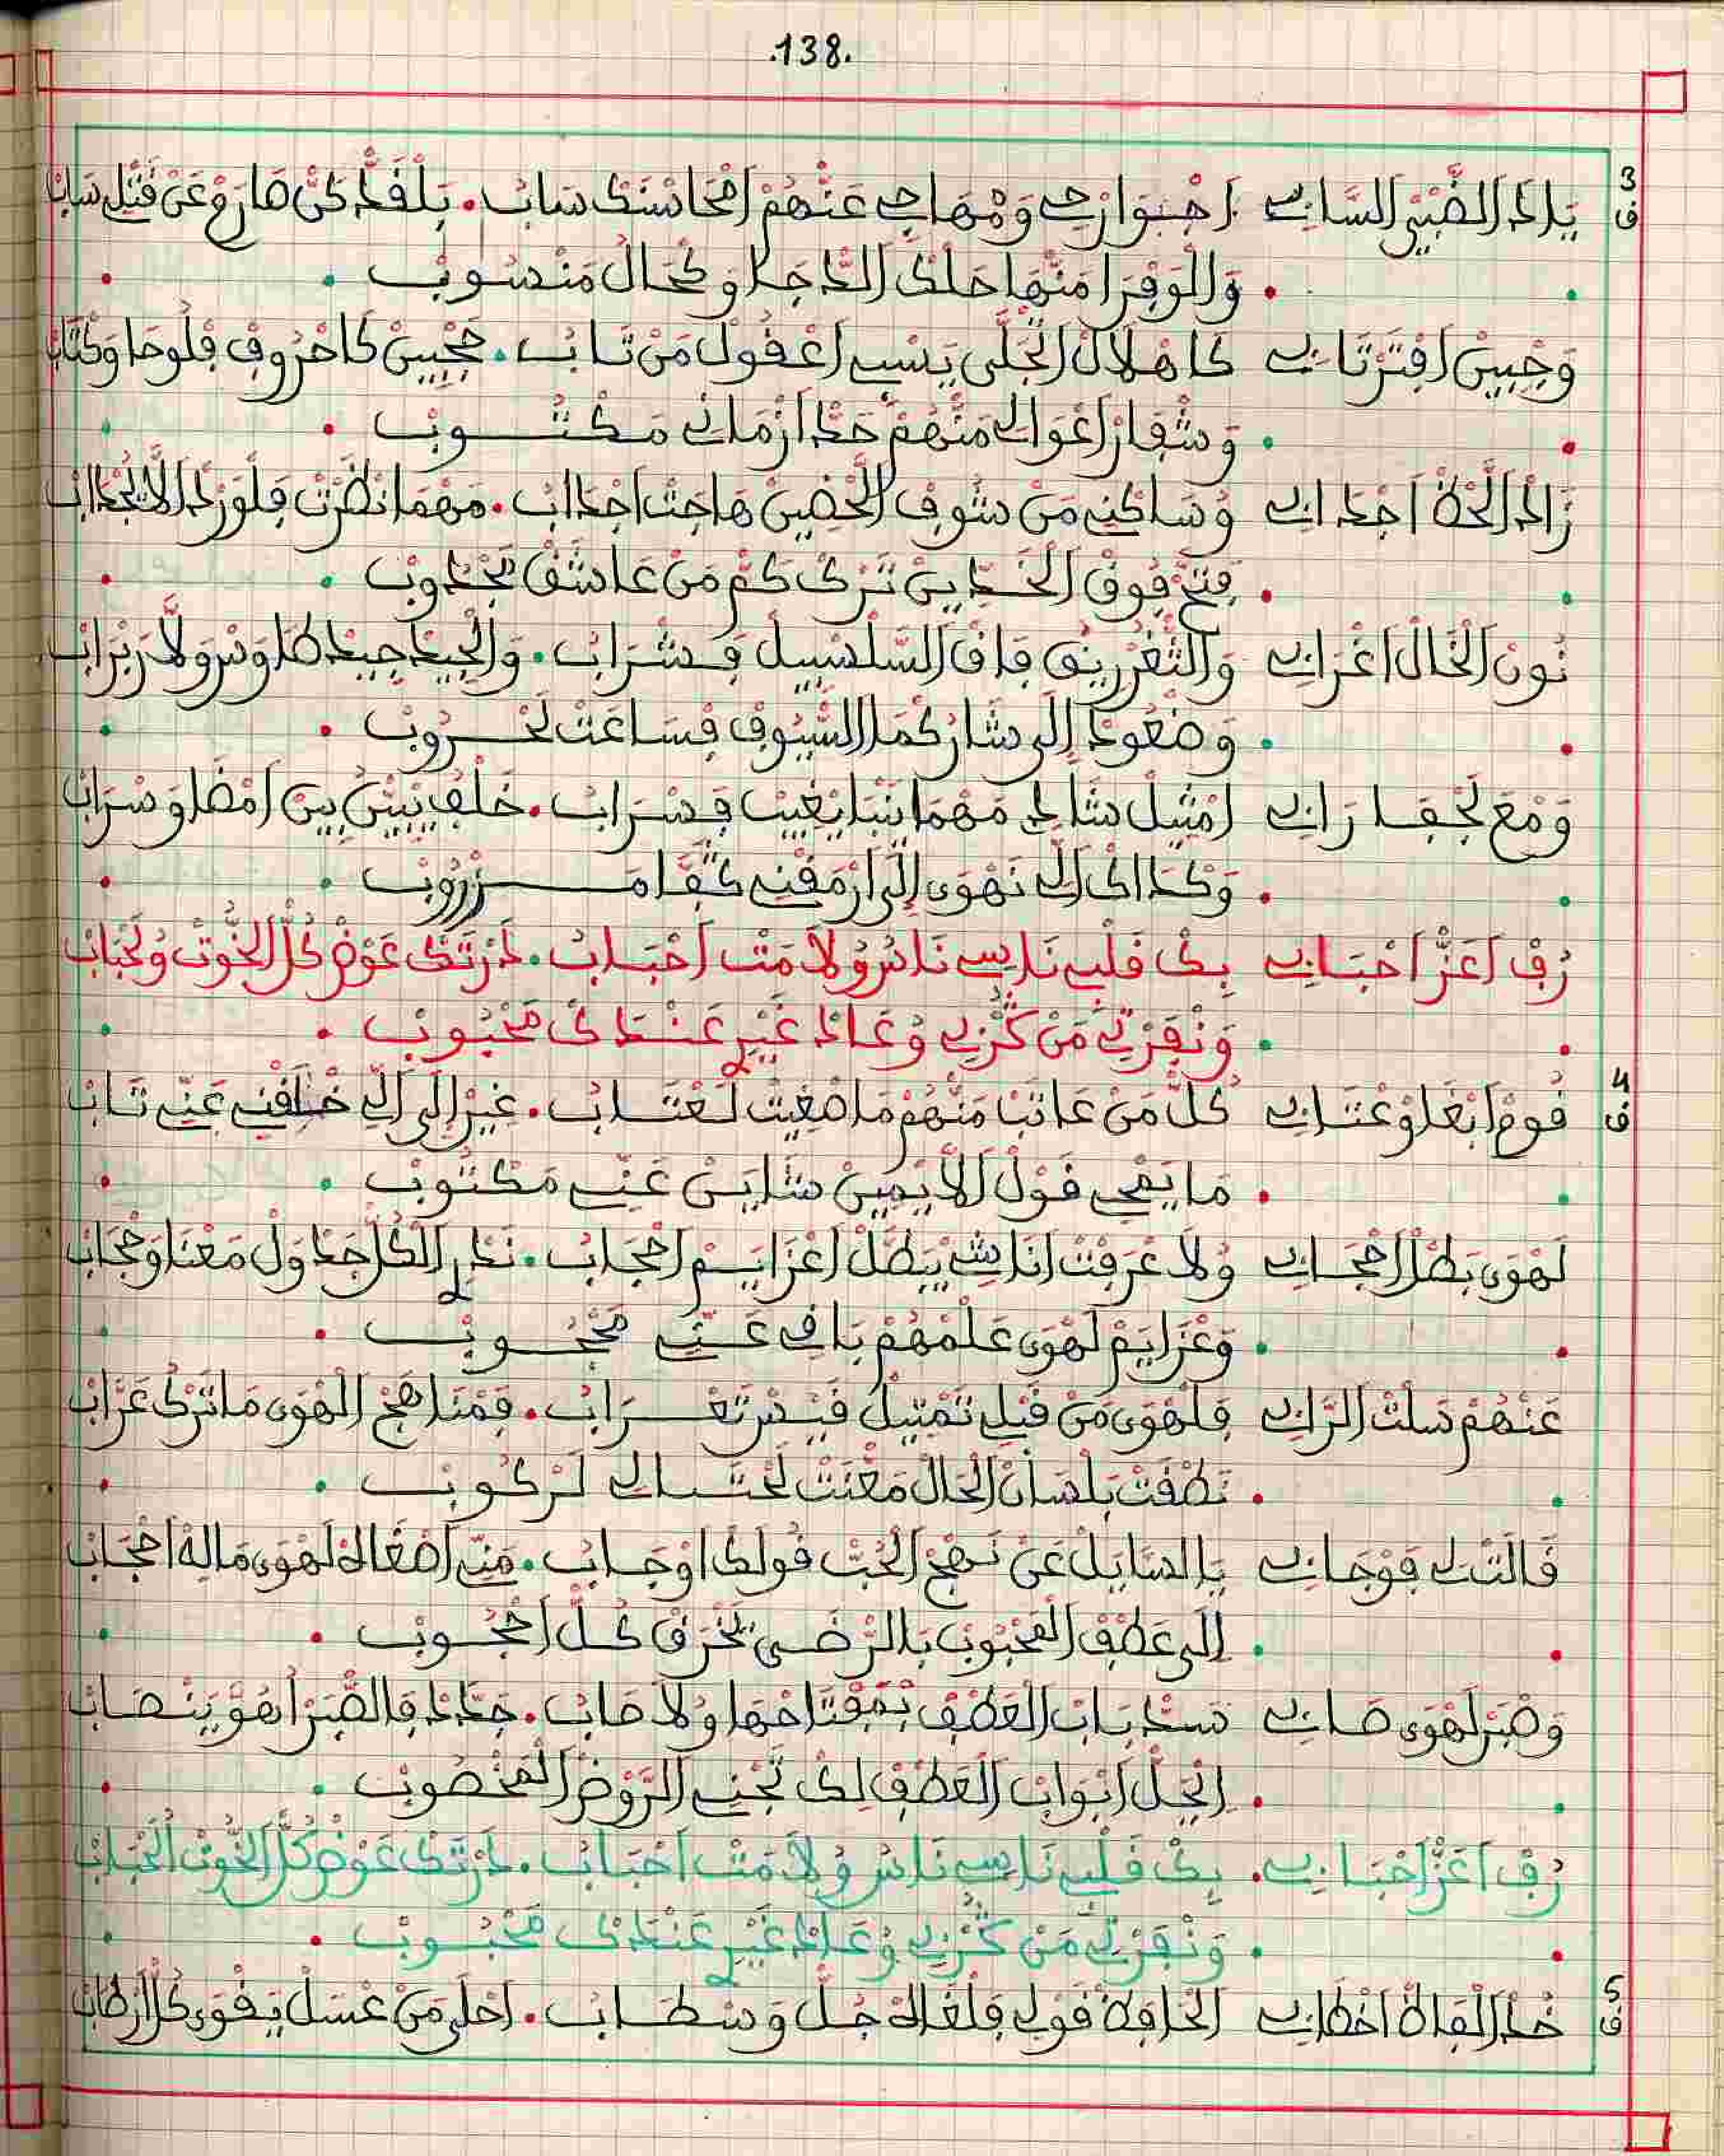 .138.
3 يَا ذَا الضَّبْيِ السَّابِي اجْوَارْحِي وَمْهَاجِي عَنْهُمْ امْحَاسْنَكْ سَابْ. بَلْقَدّْ كَنّْ صَارَمْ عَنْ قَتْلِي سَابْ
ف
وَالْوَفْرَا مَنْهَا حَلْكْ الدَّاجَا وَكْحَالْ مَنْسُوبْ
وَجْبِينْ افْتَرْتَابِي كَاهْلَالْ انْجْلَى يَسْبِي اعْقُولْ مَنْ تَابْ. حَجْبِينْ كَاحْرُوفْ فْلُوحَا وَكْتَابْ
وَشْفَارْ اعْوَالِي مَنْهُمْ حَدّْ ارْمَانِي مَكْتُوبْ
زَادْ الْحَظّْ اجْدَابِي وُسَاكْنِي مَنْ شُوفْ الْحْضِينْ هَاجَتْ اجْدَابْ. مَهْمَا نَظْرَتْ فَلْوَرْدْ الَّا نَجْدَابْ
فَتَّحْ فُوقْ الْخَدِّينْ تَرْكْ كَمّْ مَنْ عَاشَقْ مَجْدُوبْ
نُونْ الْخَالْ اغْرَابِي وَالثَّغْرْ رِيقُ فَاقْ السَّلْسْبِيلْ فَشْرَابْ. وَالْجِيدْ جِيدْ طَاوَسْ وَلَّا رَبْرَابْ
وَضْعُودْ إِلَى شَارْ كْمَا السّْيُوفْ فْسَاعَتْ لَحْرُوبْ
وَمْعَ لَجْفَا رَابِي امْثِيلْ شَالِي مَهْمَا نْبَا يْغِيبْ فَسْرَابْ. خَلْفْ يْبَيَّنْ بِينْ امْضَا وَسْرَابْ
وَكْدَاكْ الِّي نَهْوَى إِلَى ارْمَقْنِي كَفَّا مَزْرُوبْ
رُفْ اعَزّْ احْبَابِي بِكْ قَلْبِي نَاسِي نَاسُ وُلَا مْتَ احْبَابْ. دَرْتَكْ عَوْضْ كُلّْ الْخُّوتْ وُلَحْبَابْ
وَنْفَرْتِي مَنْ كَثْرِي وُعَادْ غَيْرْ عَنْدَكْ مَحْبُوبْ
4 قُومْ ابْغَاوْ عْتَابِي كُلّْ مَنْ عَاتَبْ مَنْهُمْ مَا صْغِيتْ لَعْتَابْ. غِيرْ إِلَى الِّي خَالَفْنِي عَنِّي تَابْ
ف
مَا يَمْحِي قَوْلْ الَّا يْمِينْ شَايَنْ عَنِّي مَكْتُوبْ
لَهْوَى بَطَلْ احْجَابِي وُلَا عْرَفْتْ انَاشِي يْبَطَّلْ اعْزَايَمْ احْجَابْ. نَدْرِ الْكُلّْ جَدْوَلْ مَعْنَا وَحْجَابْ
وَعْزَايَمْ لَهْوَى عَلْمْهُمْ بَاقِي عَنِّي مَحْجُوبْ
عَنْهُمْ سَلْتْ الرَّابِي فَلْهْوَى مَنْ قَبْلِي تَمْتِيلْ قَيْسْ تَغْرَابْ. فَمْنَاهَجْ الْهْوَى مَا تَرْكْ عَرَّابْ
نَطْقَتْ بَلْسَانْ الْحَالْ مَعْنَتْ لَحْتَالِي لَرْكُوبْ
قَالَتْ لِي فَوْجَابِي يَا السَّايَلْ عَنْ نَهْجْ الْحُبّْ قُولَكْ اوْجَابْ. مَنِّي اصْغَا لَهْلْ لَهْوَى مَالِهْ احْجَابْ
إِلَى عَطْفْ الْمَحْبُوبْ بَالرّْضَى نَخْرَقْ كُلّْ احْجُوبْ
وَصْبَرْ لَهْوَى صَابِي سَدّْ بَابْ الْعَطْفْ بْمَفْتَاحْهَا وُلَا صَابْ. جَدَّدْ فَالصّْبَرْ اهُوَّ يَنْصَابْ
انْحَلّْ ابْوَابْ الْعَطْفْ لِكْ تَجْنِي الرُّوضْ الْمَخْصُوبْ
رُفْ اعَزّْ احْبَابِي. بِكْ قَلْبِي نَاسِي نَاسُ وُلَا مْتَ احْبَابْ. دَرْتَكْ عَوْضْ كُلّْ الْخُّوتْ الْحْبَابْ
وَنْفَرْتِي مَنْ كَثْرِي وُعَادْ غَيْرْ عَنْدَكْ مَحْبُوبْ
5 خُدْ الْفَاظْ اخْطَابِي الْحَافَظْ قَوْلِي فَلْغَاهْ جُلّْ وَسْطَابْ. احْلَى مَنْ عْسَلْ يَقْوَى كُلّْ ارْطَابْ
ف